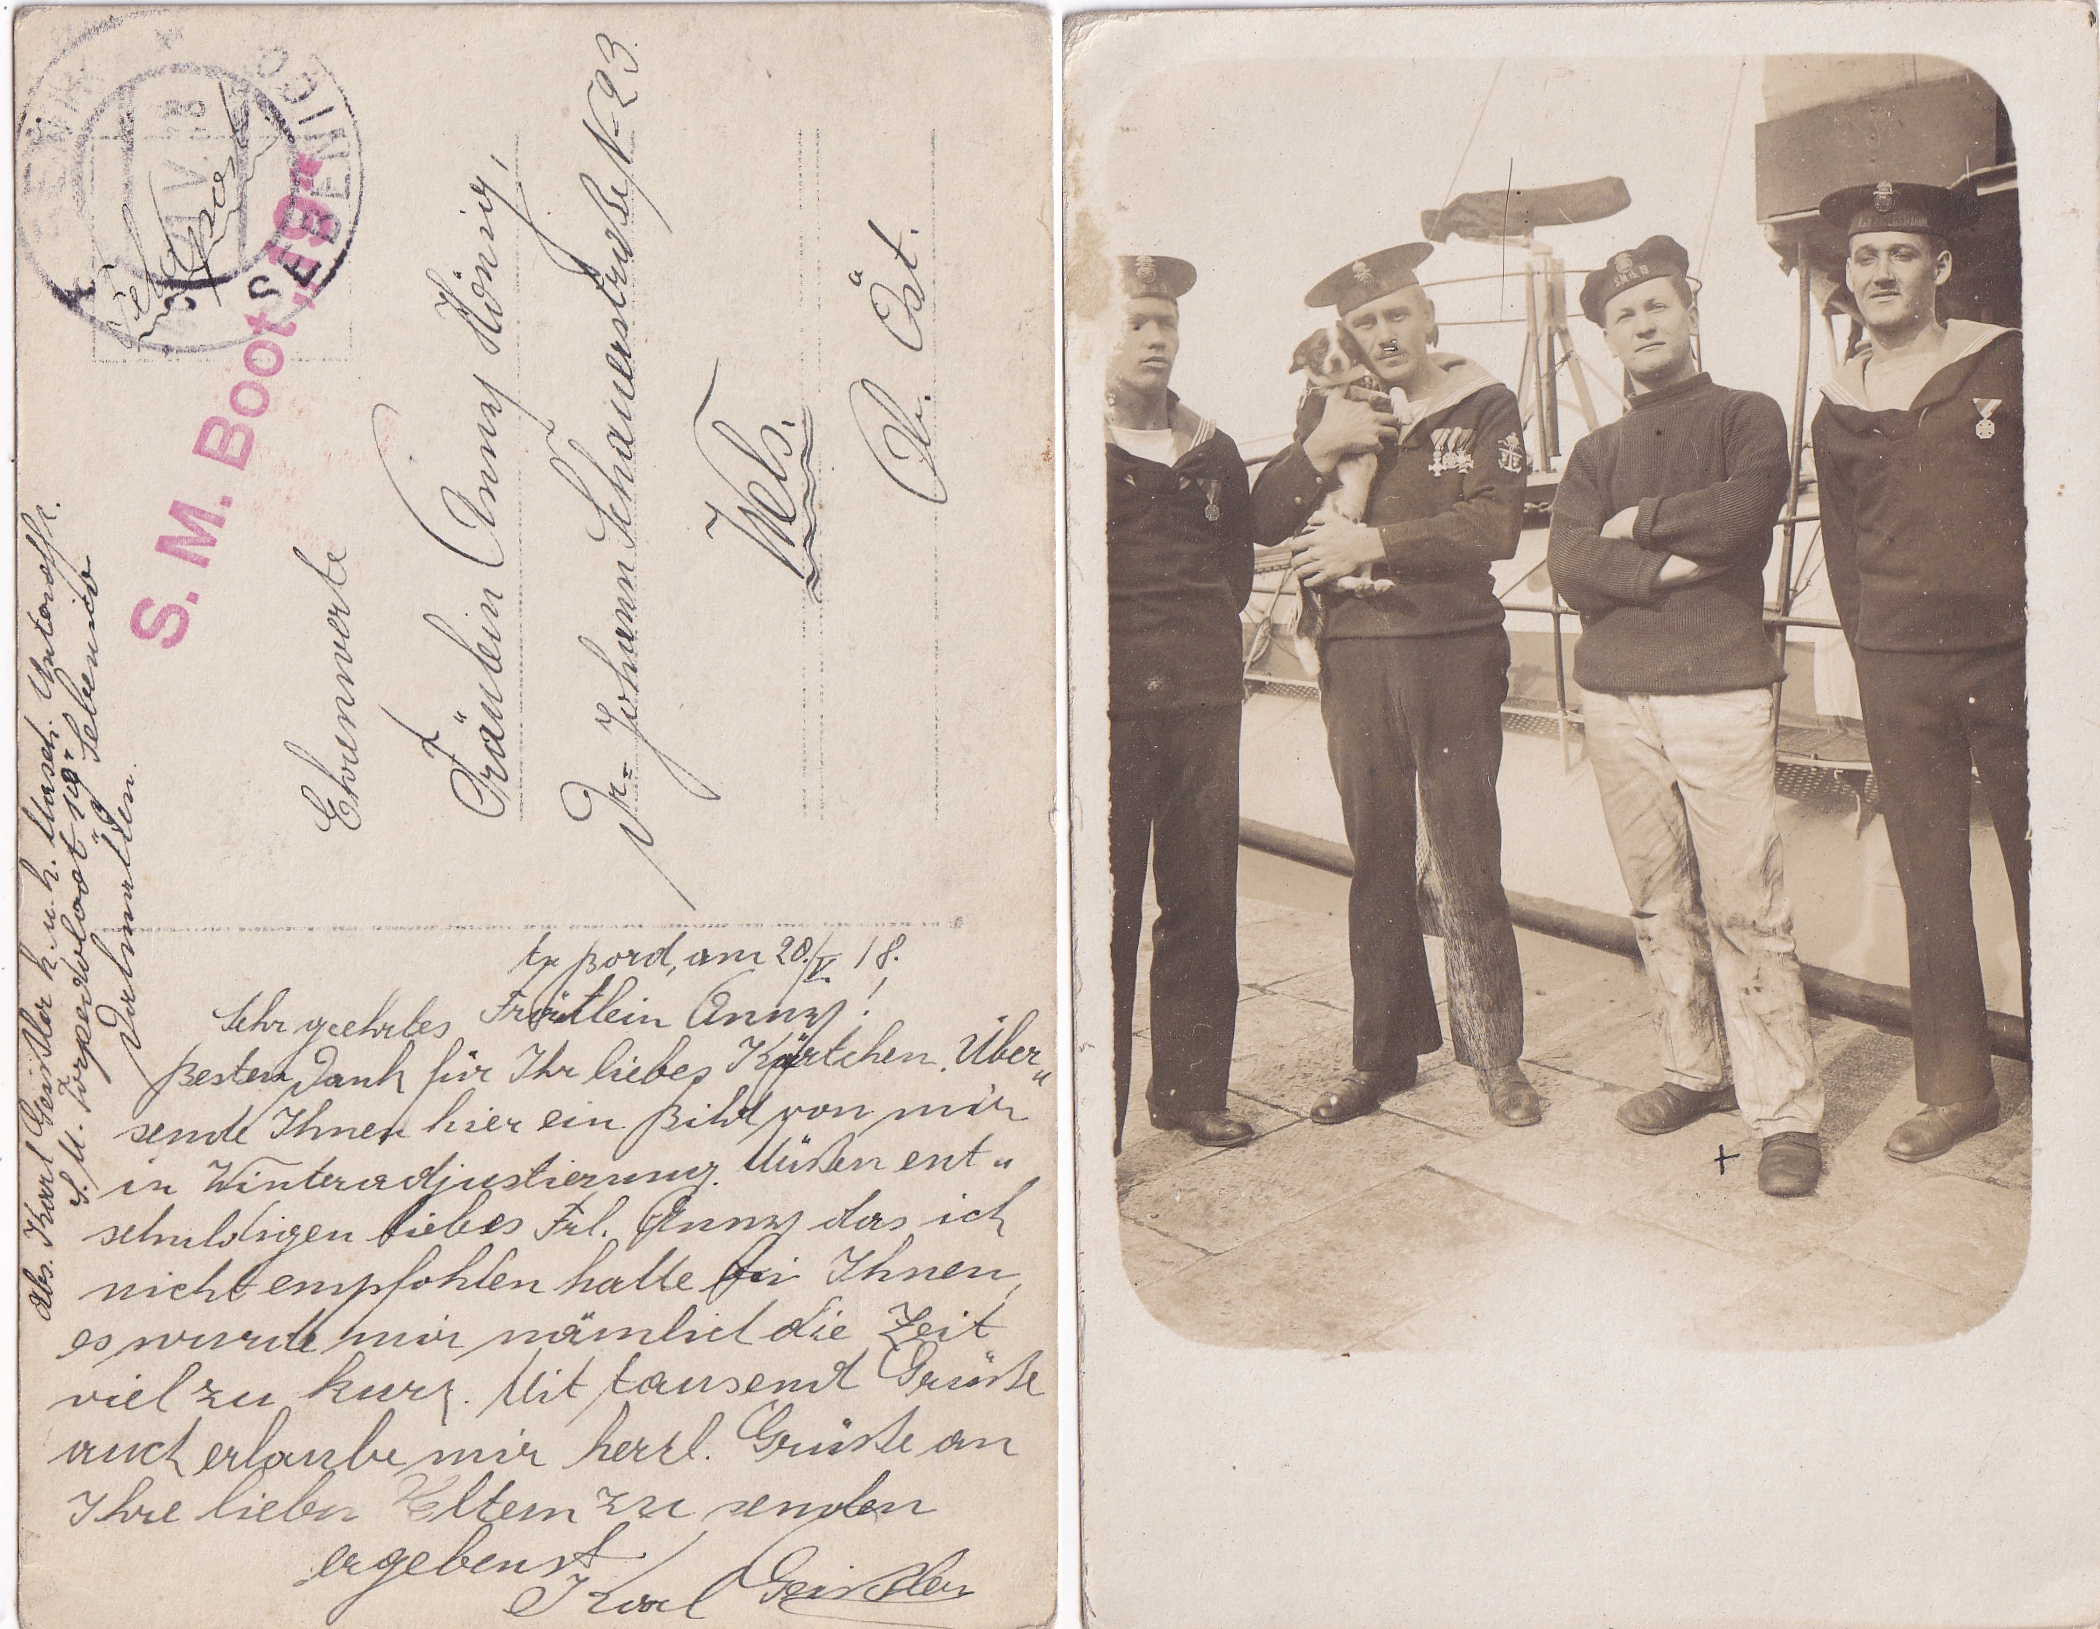 Feldpost
SEBENICO
S. M. Boot „19"
Ehrenwerte
Fräulein Anny König,
Dr-Johann Schauerstraße N- 23.
Wels.
Ob. Öst.
Abs. Karl Geißler k. u. k. Masch. Unteroffz.
S. M. Torpedoboot „19" Sebenico
Dalmatien.
An Bord, am 20./V. 18.
Sehr geehrtes Fräulein Anny!
Besten Dank für Ihr liebes Kärtchen. Über„
sende Ihnen hier ein Bild von mir
in Winteradjustierung. Müßen ent„
schuldigen liebes Frl. Anny das ich
nicht empfohlen hatte bei Ihnen,
es wurde mir nämlich die Zeit
viel zu kurz. Mit tausend Grüße
auch erlaube mir herzl. Grüße an
Ihre lieben Eltern zu senden
ergebenst
Karl Geißler
+